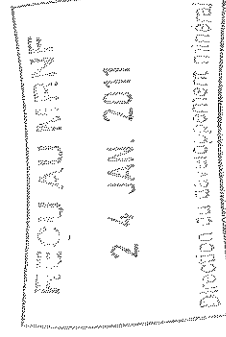 REÇU AU MRNF
24 JAN. 2011
Direction du développement minéral